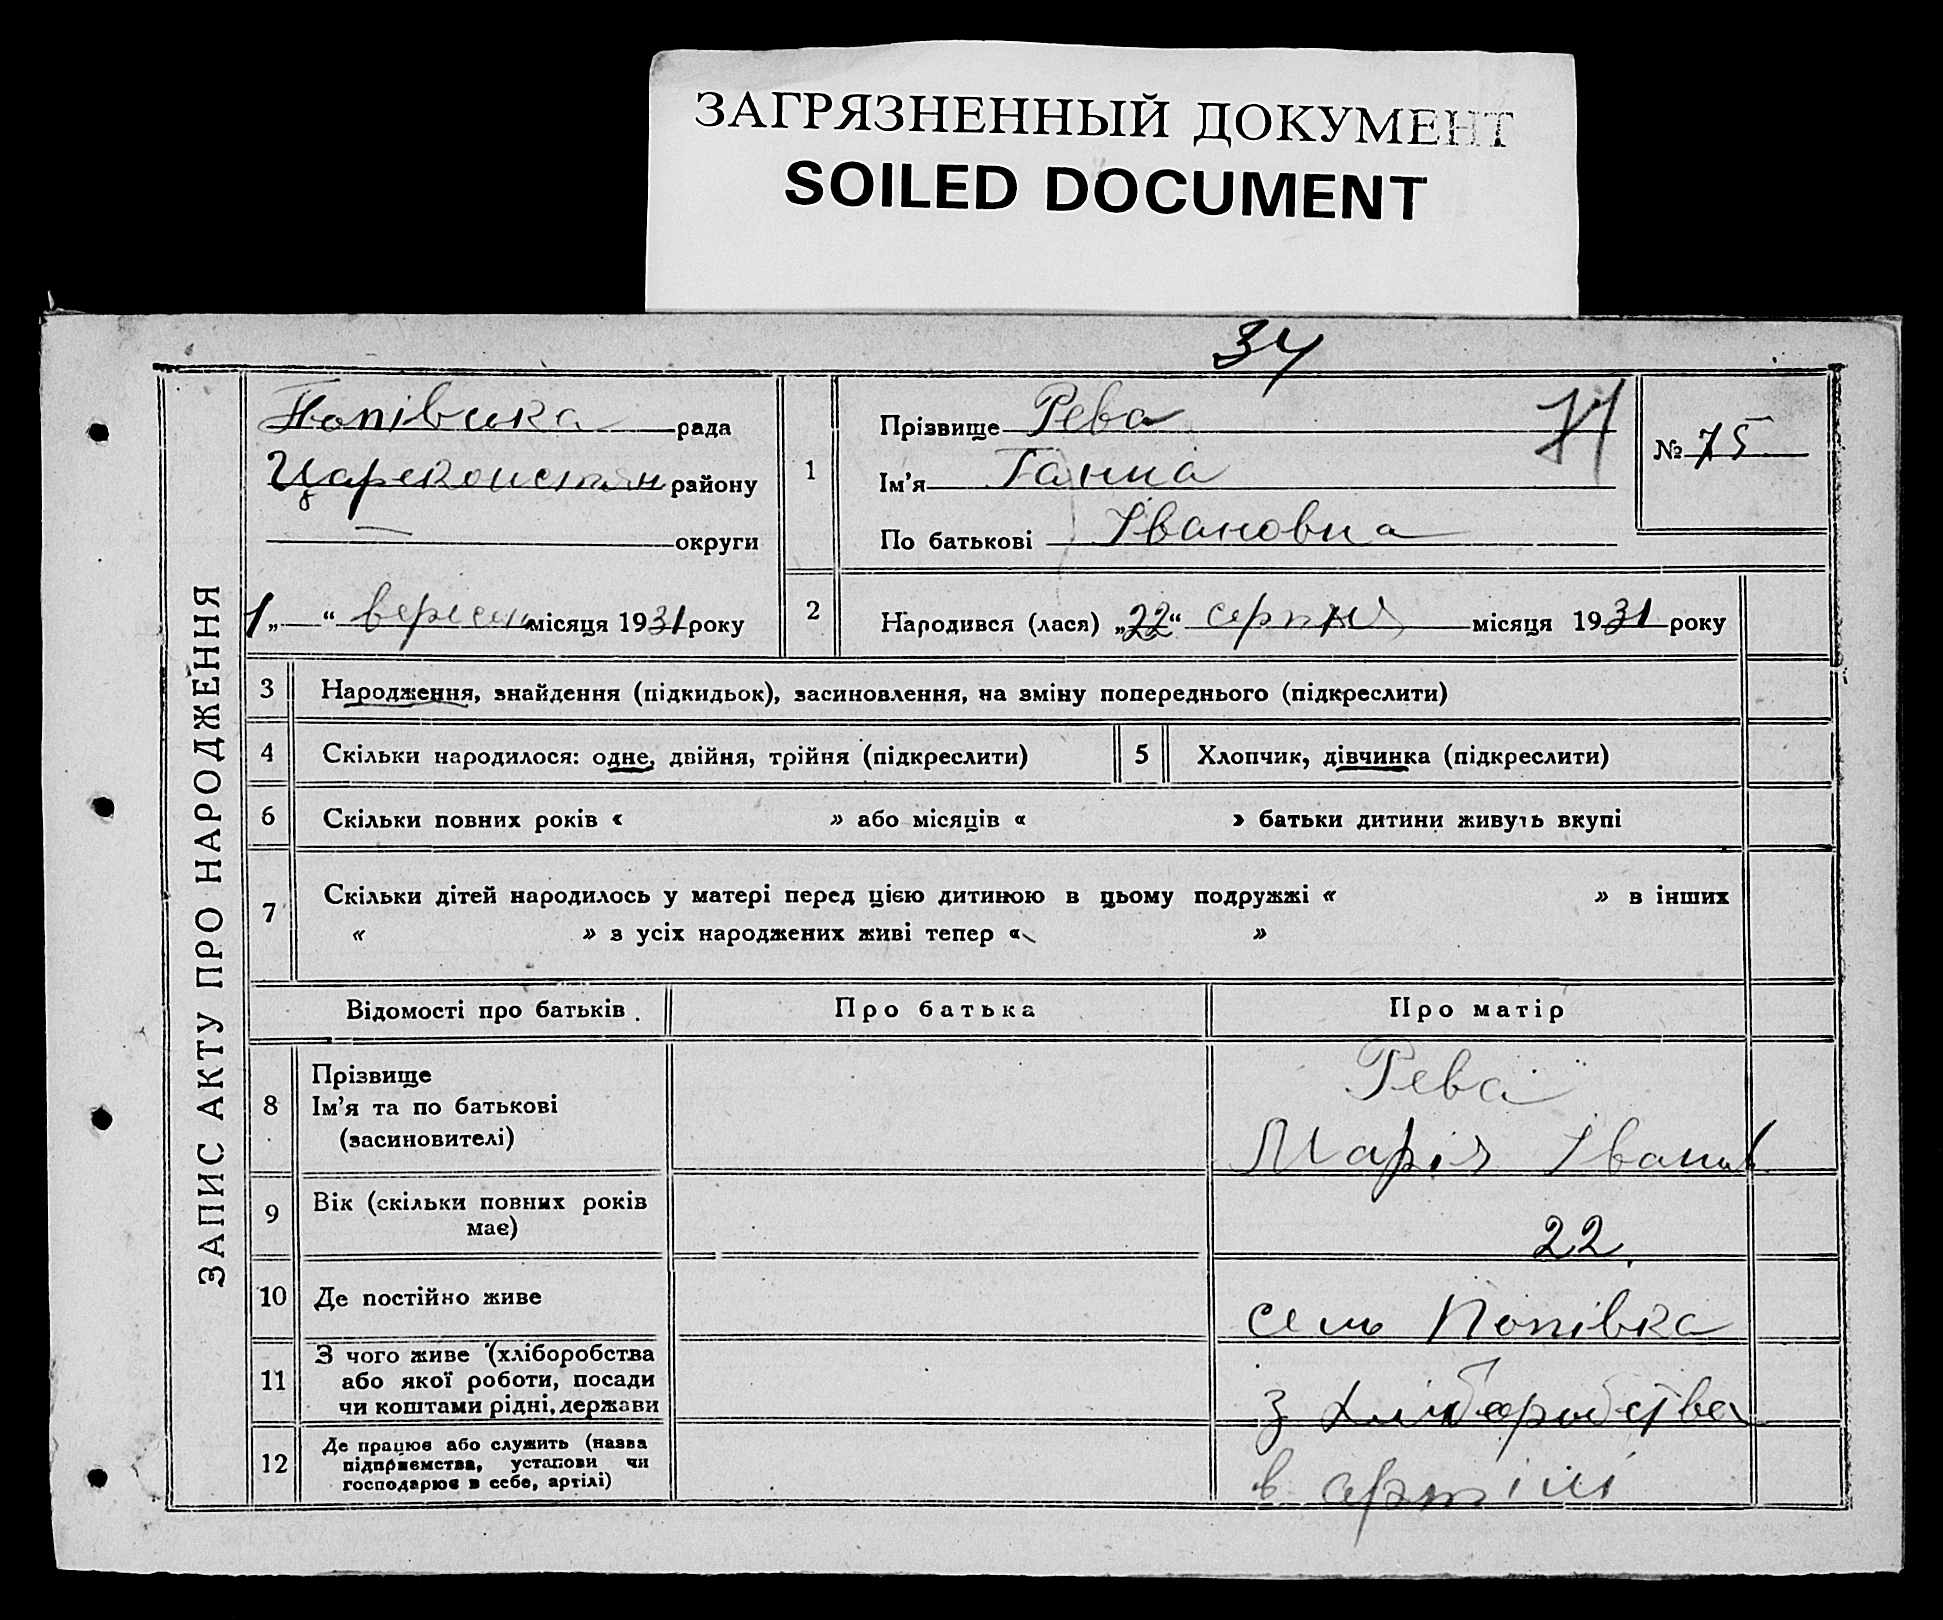 ЗАГРЯЗНЕННЫЙ ДОКУМЕНТ
SOILED DOCUMENT
34
ЗАПИС АКТУ ПРО НАРОДЖЕННЯ
Попівська рада
Цареконстян району
— округи
1 „ “ вересня місяця 1931 року
1
Прізвище Рева
Ім'я Ганна
По батькові Івановна
№ 75
2 Народився (лася) „22“ серпня місяця 1931 року
3 Народження, знайдення (підкидьок), засиновлення, на зміну попереднього (підкреслити)
4 Скільки народилося: одне, двійня, трійня (підкреслити) 5 Хлопчик, дівчинка (підкреслити)
6 Скільки повних років « » або місяців « » батьки дитини живуть вкупі
7 Скільки дітей народилось у матері перед цією дитиною в цьому подружжі « » в інших
« » з усіх народжених живі тепер « »
Відомості про батьків Про батька Про матір
8 Прізвище
Ім'я та по батькові
(засиновителі)
Рева
Марія Іванів
9 Вік (скільки повних років
має)
22
10 Де постійно живе село Попівка
11 З чого живе (хліборобства
або якої роботи, посади
чи коштами рідні, держави
з хліборобства
12 Де працює або служить (назва
підприємства, установи чи
господарює в себе, артілі)
в артілі